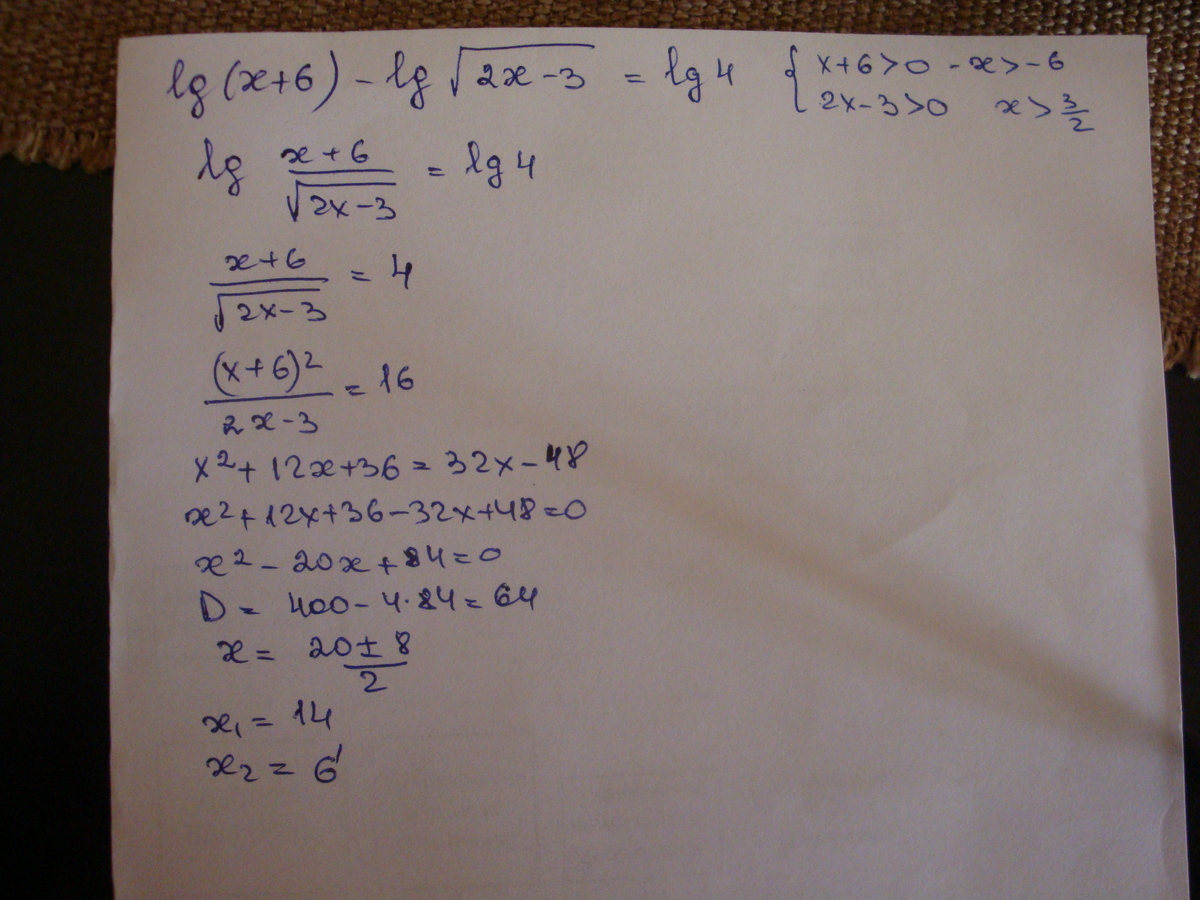 lg(x+6) - lg √(2x-3) = lg 4 { x+6>0 - x>-6
2x-3>0 x> 3/2
lg (x+6)/√(2x-3) = lg 4
(x+6)/√(2x-3) = 4
(x+6)²/(2x-3) = 16
x²+12x+36=32x-48
x²+12x+36-32x+48=0
x²-20x+84=0
D= 400-4·84=64
x= (20±8)/2
x₁=14
x₂=6